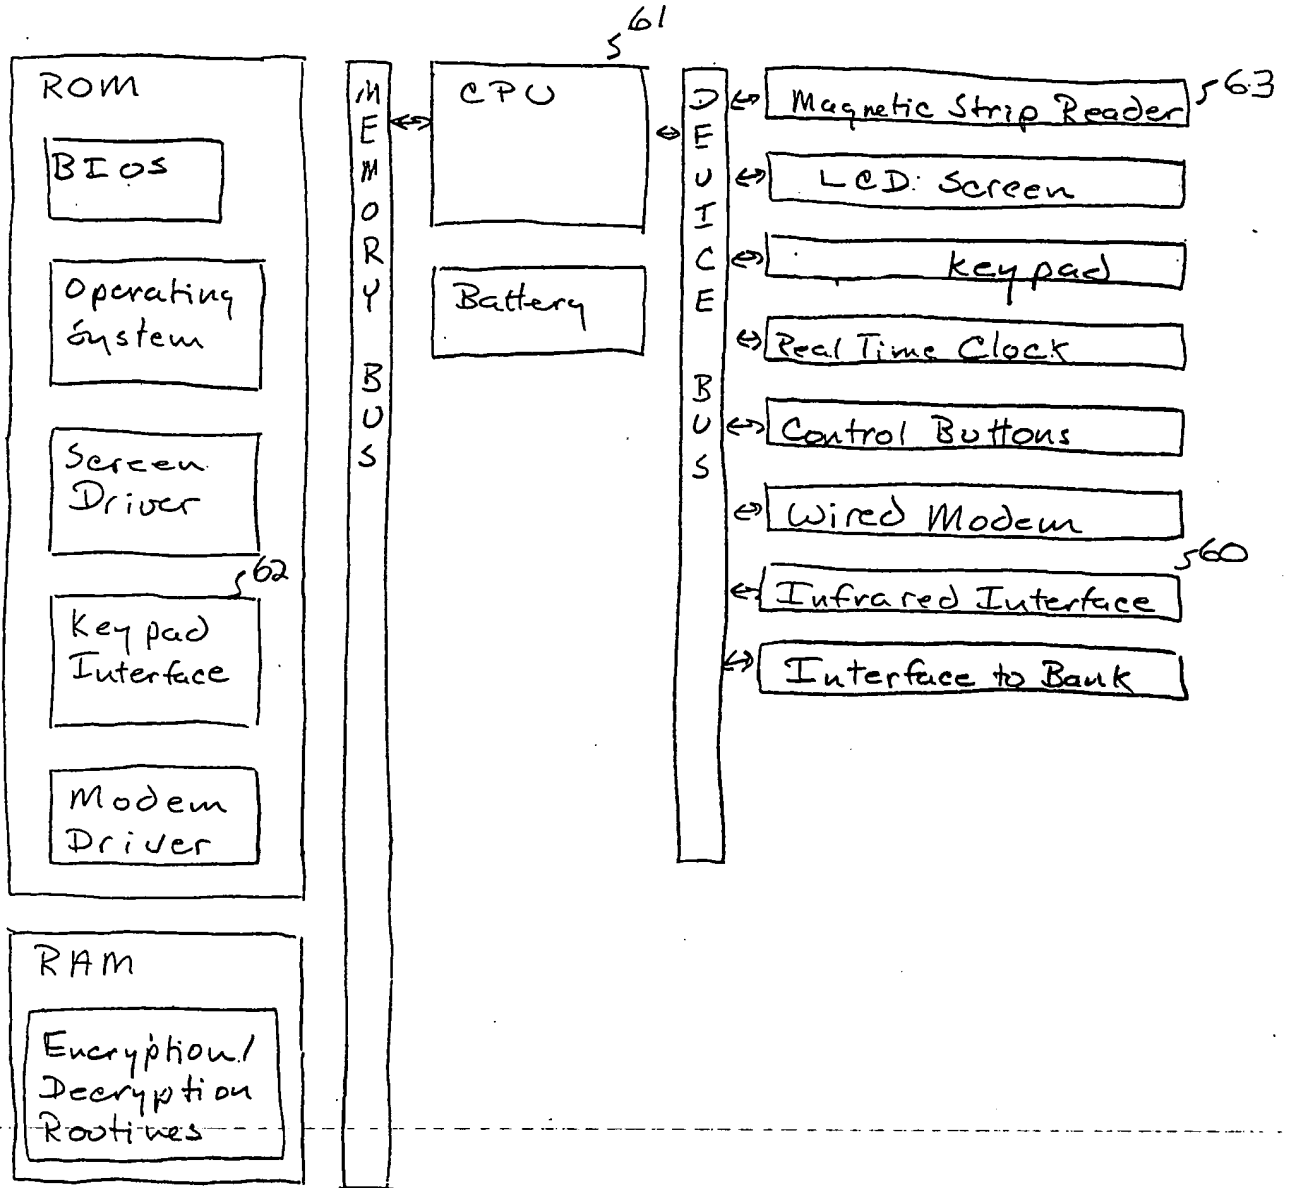 61
ROM
BIOS
Operating
System
Screen
Driver
62
Keypad
Interface
Modem
Driver
RAM
Encryption/
Decryption
Routines
MEMORY BUS
CPU
Battery
DEVICE BUS
Magnetic Strip Reader
63
LCD: Screen
Keypad
Real Time Clock
Control Buttons
Wired Modem
60
Infrared Interface
Interface to Bank